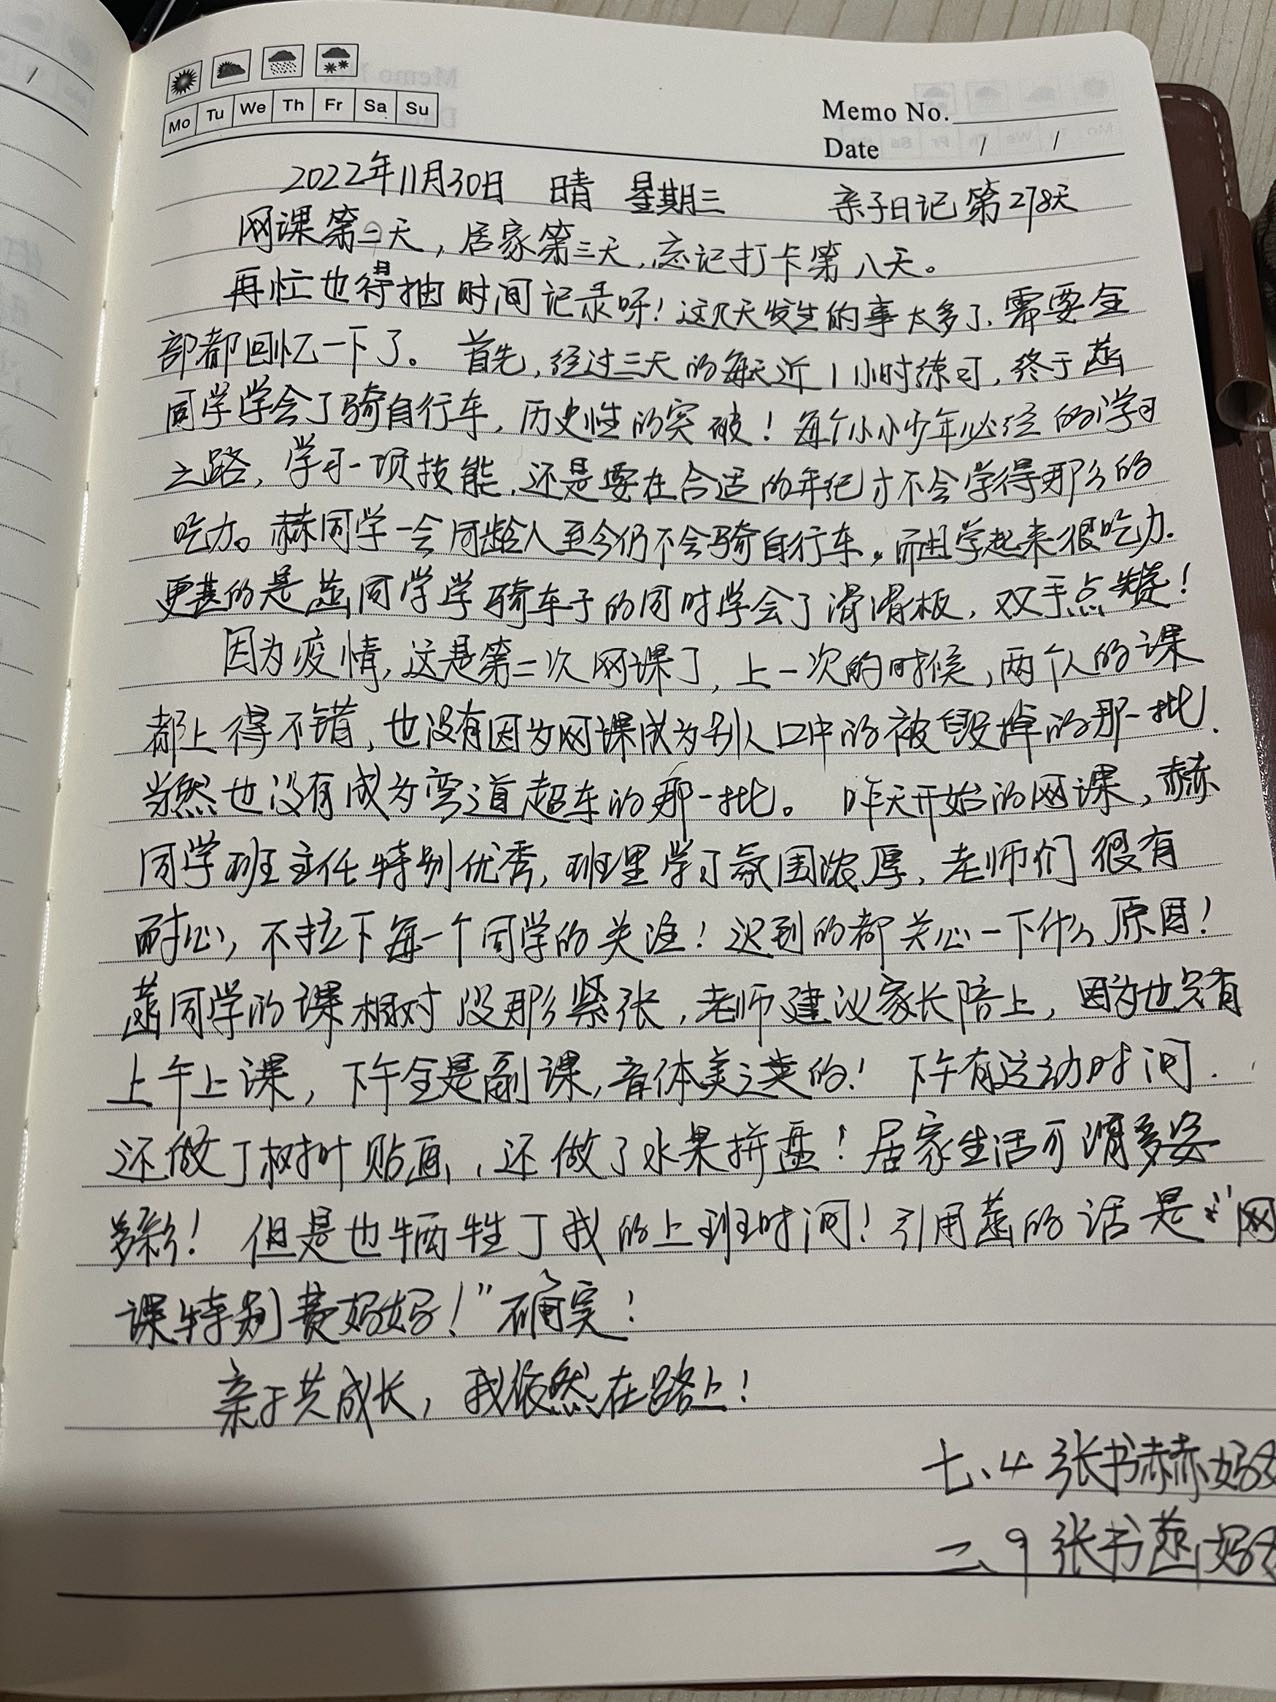 Mo Tu We Th Fr Sa Su
Memo No.
Date / /
2022年11月30日 晴 星期三 亲子日记第278天
网课第二天，居家第三天，忘记打卡第八天。
再忙也得抽时间记录呀！这几天发生的事太多了、需要全
部都回忆一下了。首先，经过三天的每天近1小时练习，终于
同学学会了骑自行车，历史性的突破！每个小小少年必经的学习
之路，学习一项技能，还是要在合适的年纪才不会学得那么的
吃力。赫同学一会同龄人至今仍不会骑自行车，而且学起来很吃力.
更甚的是同学学骑车子的同时学会了滑滑板，双手点赞！
因为疫情，这是第二次网课了，上一次的时候，两个人的课
都上得不错，也没有因为网课成为别人口中的被毁掉的那一批.
当然也没有成为弯道超车的那一批。昨天开始的网课，赫
同学班主任特别优秀，班里学习氛围浓厚，老师们很有
耐心，不拉下每一个同学的关注！迟到的都关心一下什么原因！
同学的课相对没那么紧张，老师建议家长陪上，因为也只有
上午上课，下午全是副课，音体美之类的！下午有运动时间.
还做了树叶贴画，还做了水果拼盘！居家生活可谓多姿
多彩！但是也牺牲了我的上班时间！引用的话是："网
课特别费妈妈！"确实！
亲子共成长，我依然在路上！
七、4 张书赫妈
二、9 张书妈